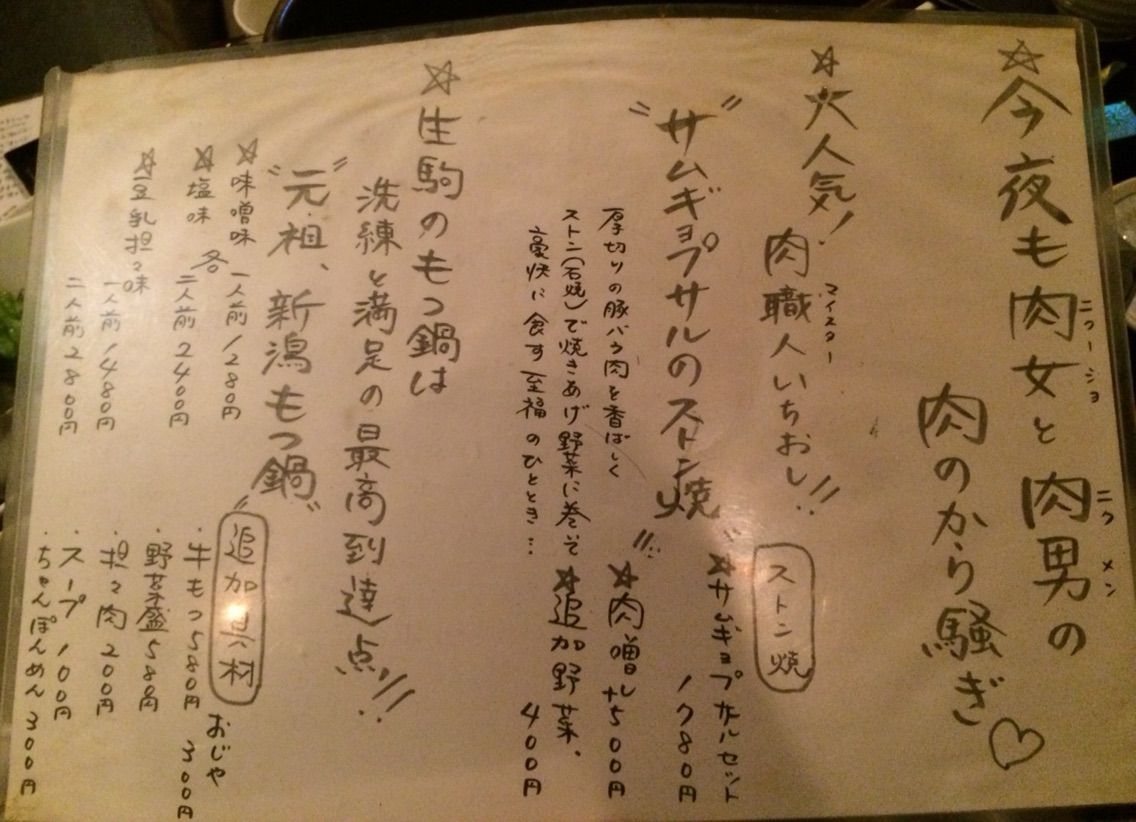 ☆今夜も肉女と肉男の
ニクージョ
ニクメン
肉のから騒ぎ♡
☆大人気!
肉職人いちおし!!
マイスター
"サムギョプサルのストン焼"!!
厚切りの豚バラ肉を香ばしく
ストン(石焼)で焼きあげ野菜に巻いて
豪快に食す至福のひととき…
ストン焼
☆サムギョプサルセット
1780円
☆肉増し+500円
☆追加野菜、
400円
☆生駒のもつ鍋は
洗練と満足の最高到達点!!
"元祖、新潟もつ鍋"
☆味噌味
☆塩味
各
一人前1280円
二人前2400円
☆豆乳担々味
一人前1480円
二人前2800円
追加具材
・牛もつ580円
おじや
300円
・野菜盛580円
・担々肉200円
・スープ100円
・ちゃんぽんめん300円